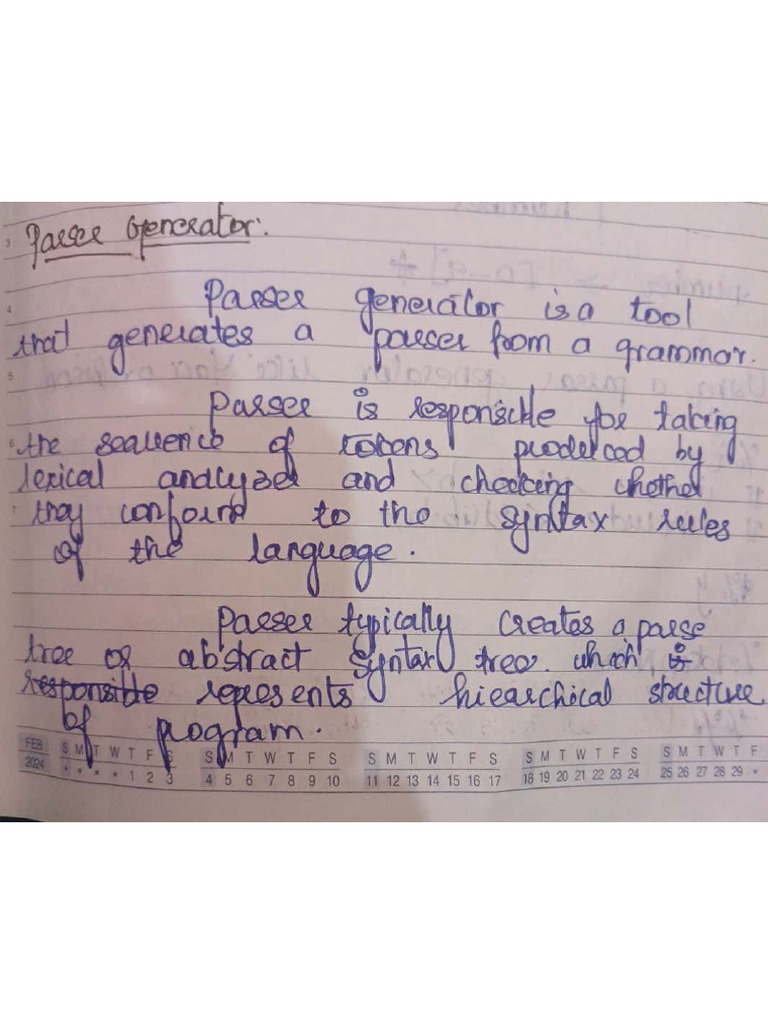 Parser Generator:
Parser generator is a tool
that generates a parser from a grammar.
Parser is responsible for taking
the sequence of tokens produced by
lexical analyzer and checking whether
they conform to the syntax rules
of the language.
Parser typically creates a parse
tree or abstract syntax tree which is
responsible represents hiearchical structure
of program.
FEB 2024 S M T W T F S S M T W T F S S M T W T F S S M T W T F S S M T W T F
• • • • 1 2 3 4 5 6 7 8 9 10 11 12 13 14 15 16 17 18 19 20 21 22 23 24 25 26 27 28 29 •